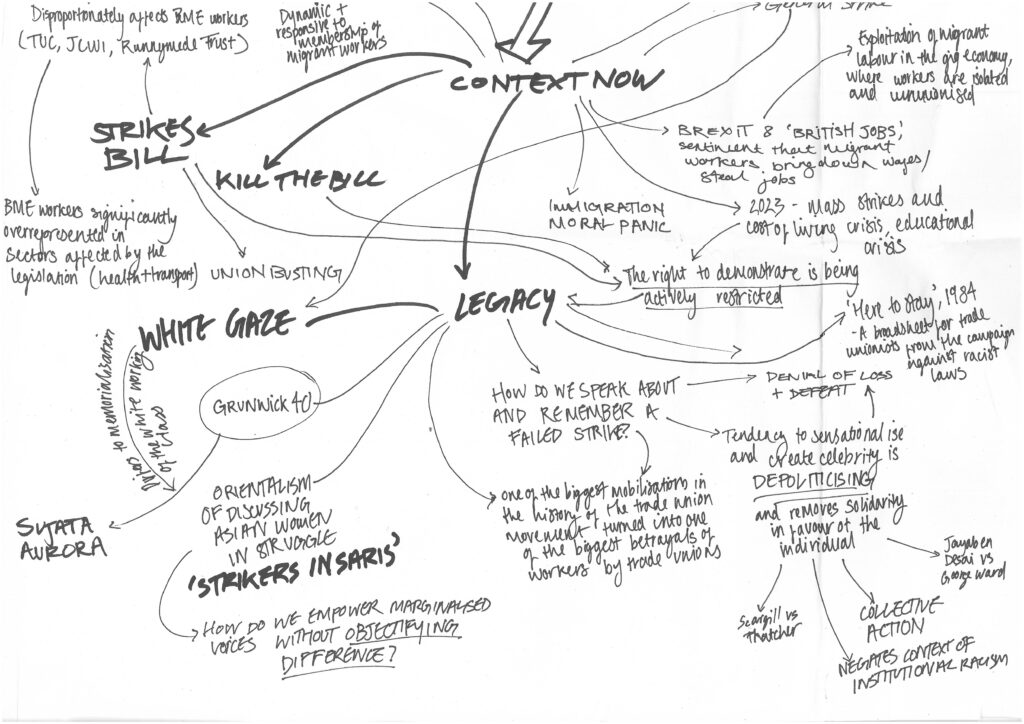 Disproportionately affects BME workers
(TUC, JCWI, Runnymede Trust)
Dynamic +
responsive to
membership of
migrant workers
General Strike
CONTEXT NOW
Exploitation of migrant
labour in the gig economy,
where workers are isolated
and ununionised
STRIKES
BILL
KILL THE BILL
BREXIT & 'BRITISH JOBS',
sentiment that migrant
workers bring down wages/
steal jobs
IMMIGRATION
MORAL PANIC
2023 - mass strikes and
cost of living crisis, educational
crisis
BME workers significantly
overrepresented in
sectors affected by the
legislation (health + transport)
UNION BUSTING
The right to demonstrate is being
actively restricted
LEGACY
WHITE GAZE
'Here to stay', 1984
- A broadsheet for trade
unionists from the campaign
against racist
laws
to memorialisation
of the white working
class
GRUNWICK 40
HOW DO WE SPEAK ABOUT
AND REMEMBER A
FAILED STRIKE?
DENIAL OF LOSS
+ DEFEAT
Tendency to sensationalise
and create celebrity is
DEPOLITICISING
and removes solidarity
in favour of the
individual
SUJATA
AURORA
ORIENTALISM
OF DISCUSSING
ASIAN WOMEN
IN STRUGGLE
'STRIKERS IN SARIS'
one of the biggest mobilisations in
the history of the trade union
movement turned into one
of the biggest betrayals of
workers by trade unions
HOW DO WE EMPOWER MARGINALISED
VOICES WITHOUT OBJECTIFYING
DIFFERENCE?
Jayaben
Desai vs
George Ward
Scargill vs
Thatcher
COLLECTIVE
ACTION
NEGATES CONTEXT OF
INSTITUTIONAL RACISM